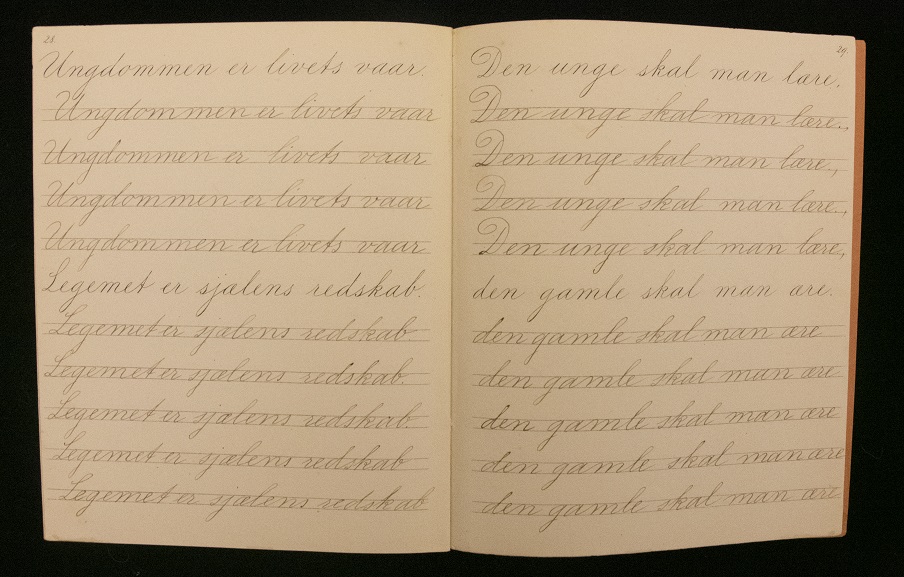 28.
Ungdommen er livets vaar.
Ungdommen er livets vaar
Ungdommen er livets vaar
Ungdommen er livets vaar
Ungdommen er livets vaar
Legemet er sjælens redskab.
Legemet er sjælens redskab.
Legemet er sjælens redskab.
Legemet er sjælens redskab.
Legemet er sjælens redskab
Legemet er sjælens redskab
29.
Den unge skal man lære.
Den unge skal man lære.,
Den unge skal man lære.,
Den unge skal man lære.,
Den unge skal man lære,
den gamle skal man ære.
den gamle skal man ære
den gamle skal man ære
den gamle skal man ære
den gamle skal man ære
den gamle skal man ære